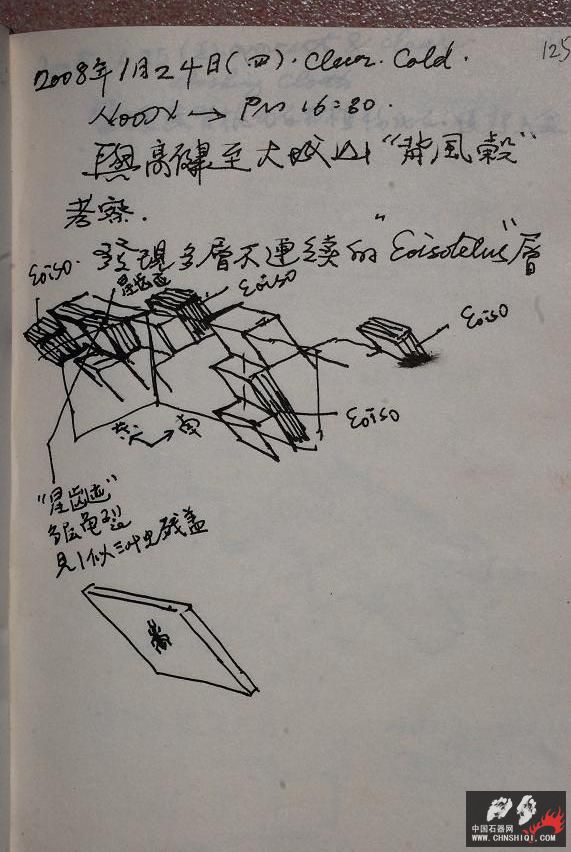 125
2008年1月24日(四). Clear. Cold.
Noon → PM 16:30.
與高碑至大城山“静風穀”
考察.
發現多層不連續的“Eoisotelus”層
Eoiso.
星齿迹
Eoiso
Eoiso
Eoiso
“星齿迹”
多层
見1似三叶虫残盖
中国石器网
WWW.CHNSHIQI.COM